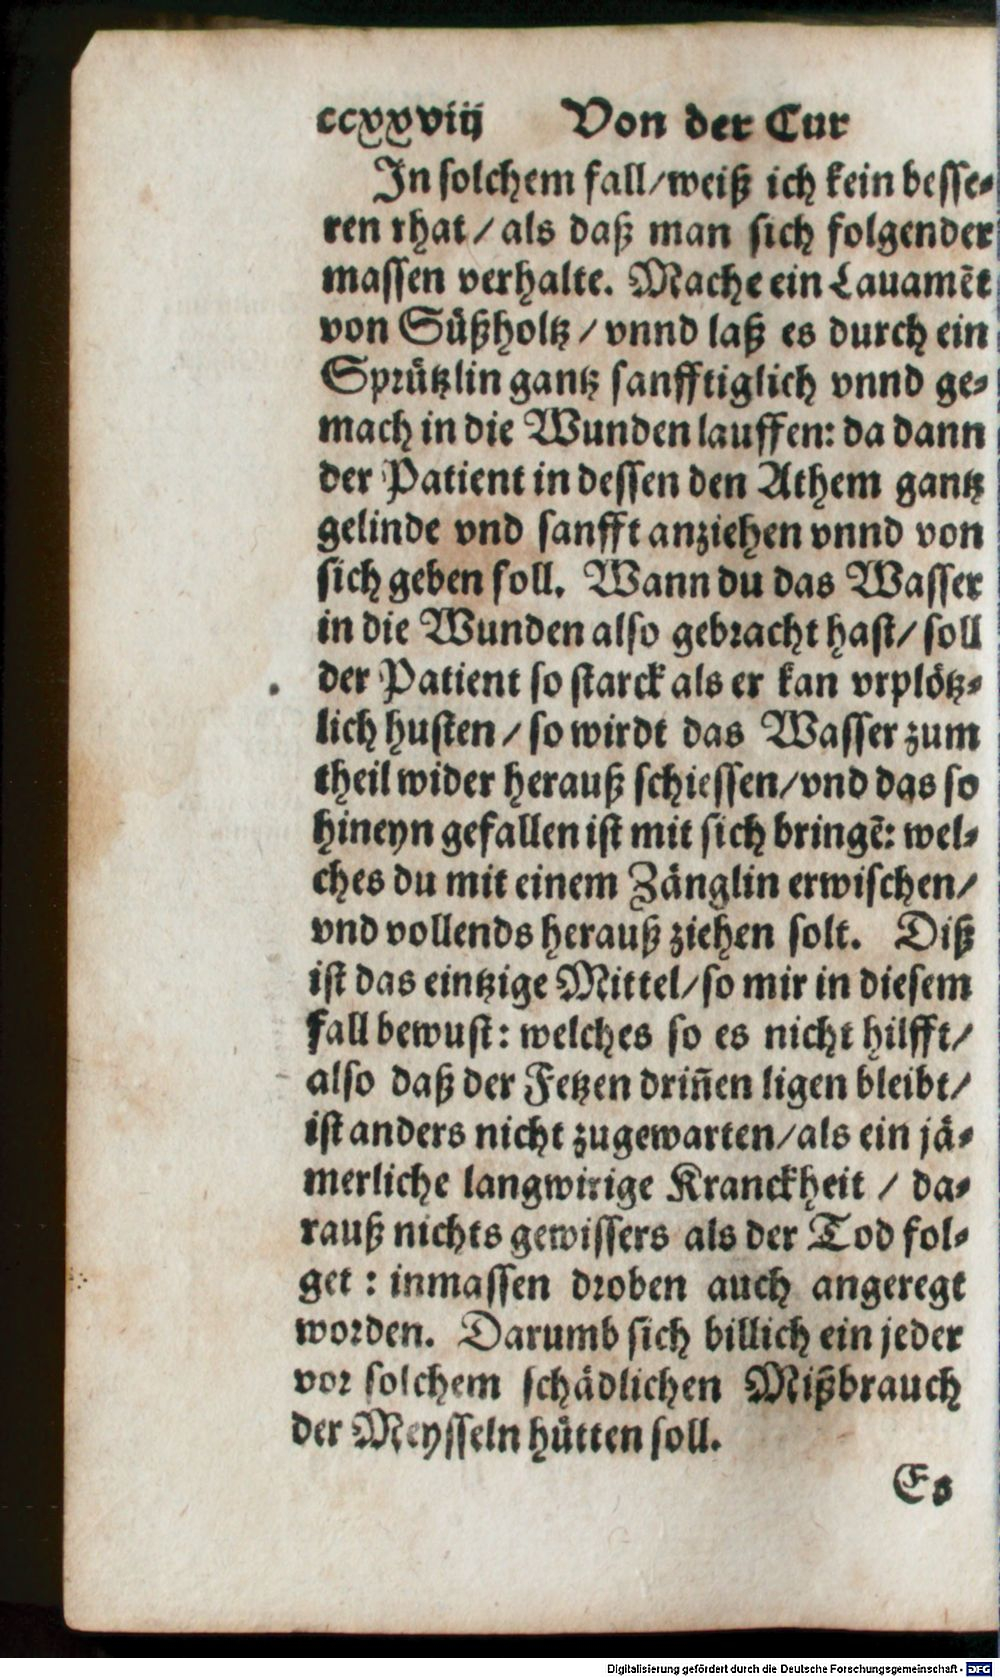 ccxxviij Von der Cur
In solchem fall/weiß ich kein besse⸗
ren rhat/ als daß man sich folgender
massen verhalte. Mache ein Lauamẽt
von Süßholtz/ vnnd laß es durch ein
Sprützlin gantz sanfftiglich vnnd ge⸗
mach in die Wunden lauffen: da dann
der Patient in dessen den Athem gantz
gelinde vnd sanfft anziehen vnnd von
sich geben soll. Wann du das Wasser
in die Wunden also gebracht hast/ soll
der Patient so starck als er kan vrplötz⸗
lich husten/ so wirdt das Wasser zum
theil wider herauß schiessen/vnd das so
hineyn gefallen ist mit sich bringẽ: wel⸗
ches du mit einem Zänglin erwischen/
vnd vollends herauß ziehen solt. Diß
ist das eintzige Mittel/so mir in diesem
fall bewust: welches so es nicht hilfft/
also daß der Fetzen driñen ligen bleibt/
ist anders nicht zugewarten/als ein jä⸗
merliche langwirige Kranckheit / da⸗
rauß nichts gewissers als der Tod fol⸗
get : inmassen droben auch angeregt
worden. Darumb sich billich ein jeder
vor solchem schädlichen Mißbrauch
der Meysseln hütten soll.
Es
Digitalisierung gefördert durch die Deutsche Forschungsgemeinschaft - DFG